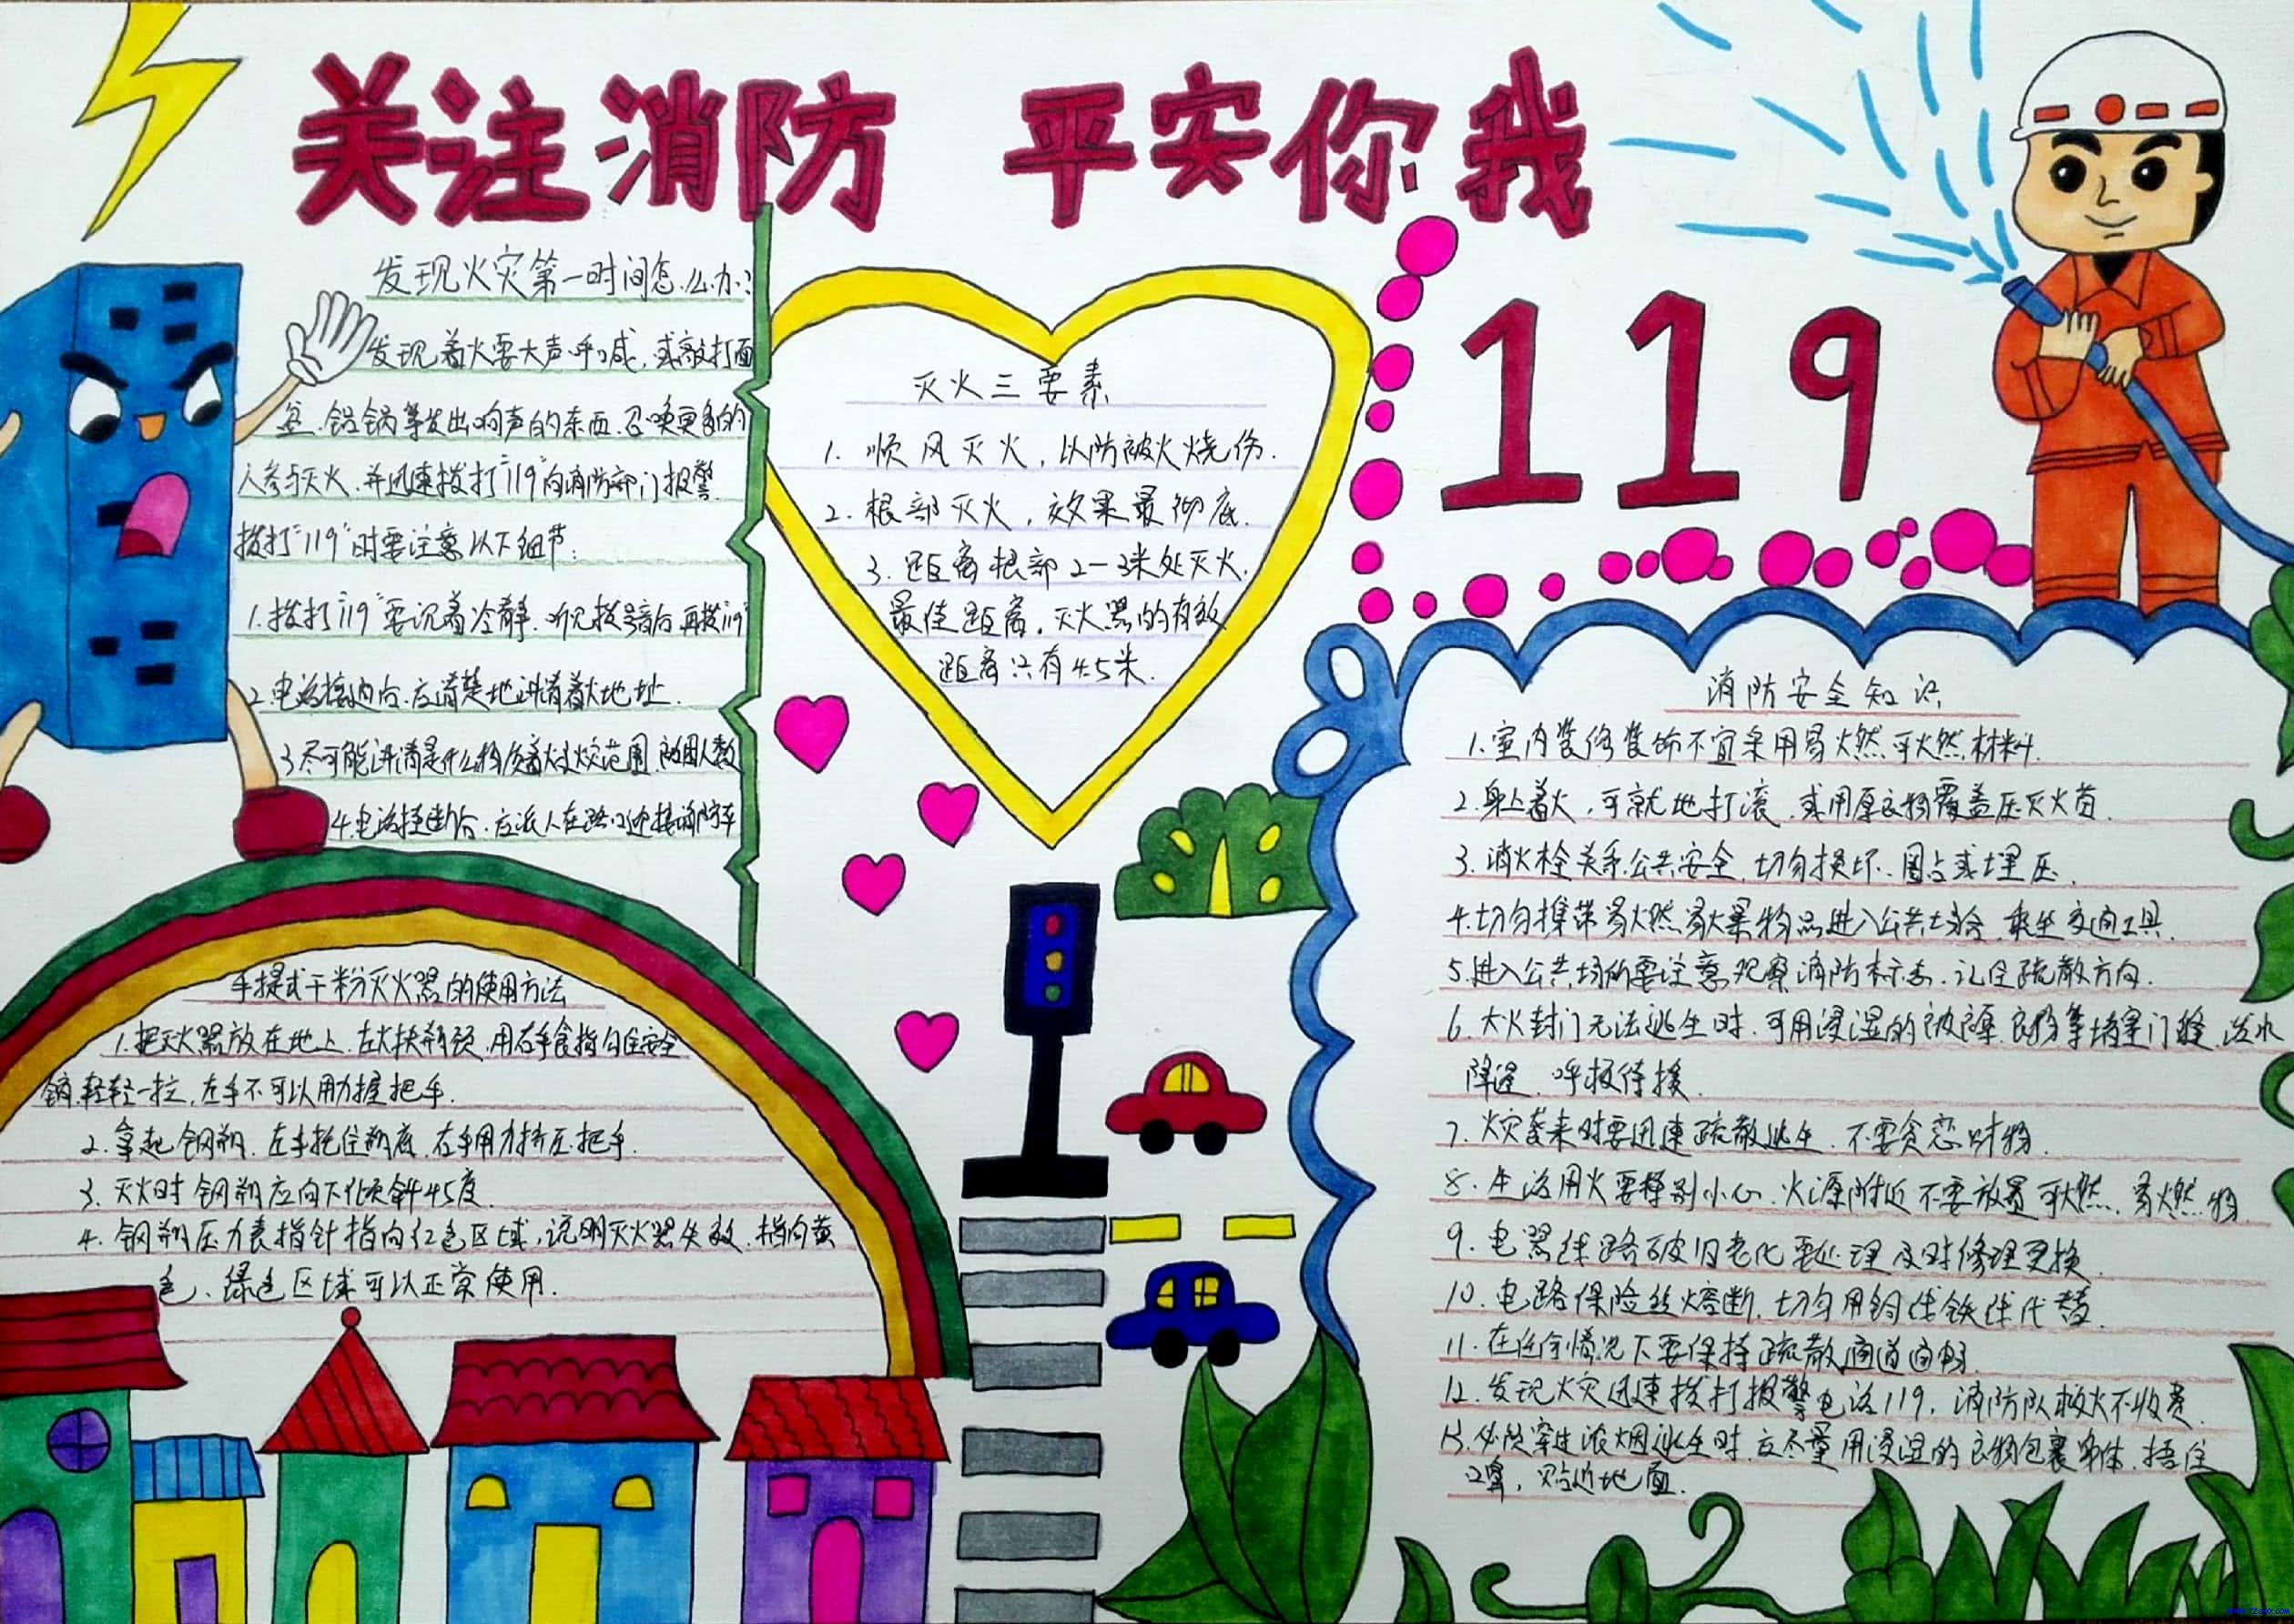 关注消防 平安你我
119
发现火灾第一时间怎么办?
发现着火要大声呼喊,或敲打面
盆、铝锅等发出响声的东西,召唤更多的
人参与灭火,并迅速拨打"119"向消防部门报警
拨打"119"时要注意以下细节:
1.拨打"119"要沉着冷静,听见拨号音后再拨"119"
2.电话接通后,应清楚地讲清着火地址.
3.尽可能讲清是什么物质着火及火灾范围、被困人数
4.电话挂断后,应派人在路口迎接消防车
灭火三要素
1. 顺风灭火,以防被火烧伤.
2. 根部灭火,效果最彻底.
3. 距离根部2-3米处灭火.
最佳距离,灭火器的有效
距离只有4.5米.
手提式干粉灭火器的使用方法
1.把灭火器放在地上,左手扶瓶颈,用右手食指勾住安全
销,轻轻一拉,左手不可以用力握把手.
2.拿起钢瓶,左手托住瓶底,右手用力挤压把手.
3. 灭火时钢瓶应向下倾斜45度
4. 钢瓶压力表指针指向红色区域,说明灭火器失效.指向黄
色、绿色区域可以正常使用.
消防安全知识
1.室内装修装饰不宜采用易燃、可燃材料.
2.身上着火,可就地打滚,或用厚衣物覆盖压灭火苗.
3.消火栓关系公共安全,切勿损坏、圈占或埋压.
4.切勿携带易燃易爆物品进入公共场合、乘坐交通工具.
5.进入公共场所要注意观察消防标志,记住疏散方向.
6.大火封门无法逃生时,可用浸湿的被褥、衣物等堵塞门缝,泼水
降温,呼救待援.
7.火灾袭来时要迅速疏散逃生,不要贪恋财物.
8.生活用火要特别小心,火源附近不要放置可燃、易燃物.
9.电器线路破旧老化要处理及时修理更换.
10.电路保险丝熔断,切勿用铜线铁线代替.
11.在任何情况下要保持疏散通道通畅.
12.发现火灾迅速拨打报警电话119,消防队救火不收费.
13.必须穿过浓烟逃生时,应尽量用浸湿的衣物包裹身体,捂住
口鼻,贴近地面.